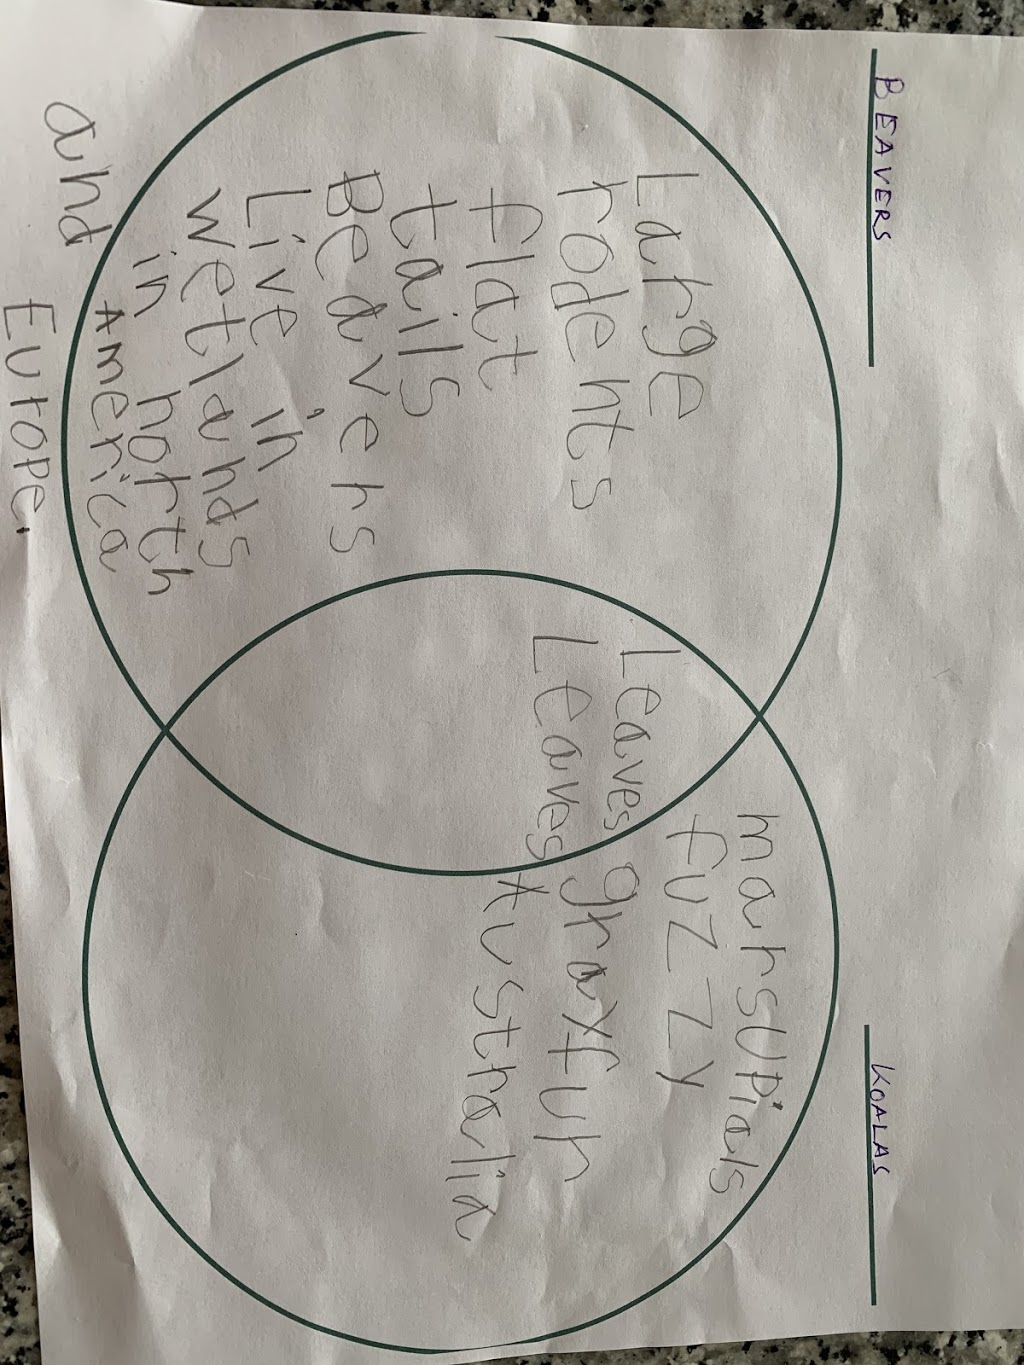 BEAVERS
Large
rodents
flat
tails
Beavers
Live in
wetlands
in north
America
and
Europe.
Leaves
Leaves
KOALAS
marsupials
fuzzy
gray fur
Australia